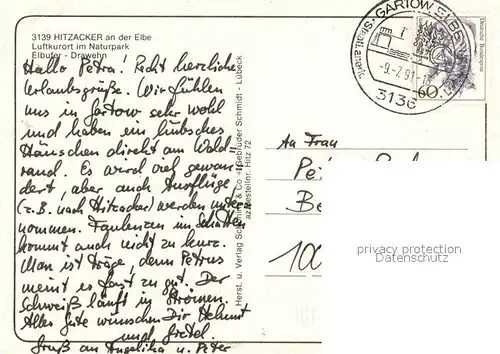 3139 HITZACKER an der Elbe
Luftkurort im Naturpark
Elbufer - Drawehn
Hallo Petra! Recht herzliche
Urlaubsgrüße. Wir fühlen
uns in Gartow sehr wohl
und haben ein hübsches
Häuschen direkt am Wald-
rand. Es wird viel gewan-
dert, aber auch Ausflüge
(z.B. nach Hitzacker) werden unter-
nommen. Faulenzen im Schatten
kommt auch nicht zu kurz.
Man ist träge, denn Petrus
meint es fast zu gut. Der
Schweiß läuft in Strömen.
Alles Gute wünschen Dir Helmut
und Gretel.
Gruß an Angelika u. Peter
Herst. u. Verlag Schöning & Co + Gebrüder Schmidt - Lübeck
Bestellnr. Hitz 72
GARTOW ELBE
staatl. anerk.
-9.-7.91-1
3136
Deutsche Bundespost
60
An Frau
Pe
Be
100
privacy protection
Datenschutz